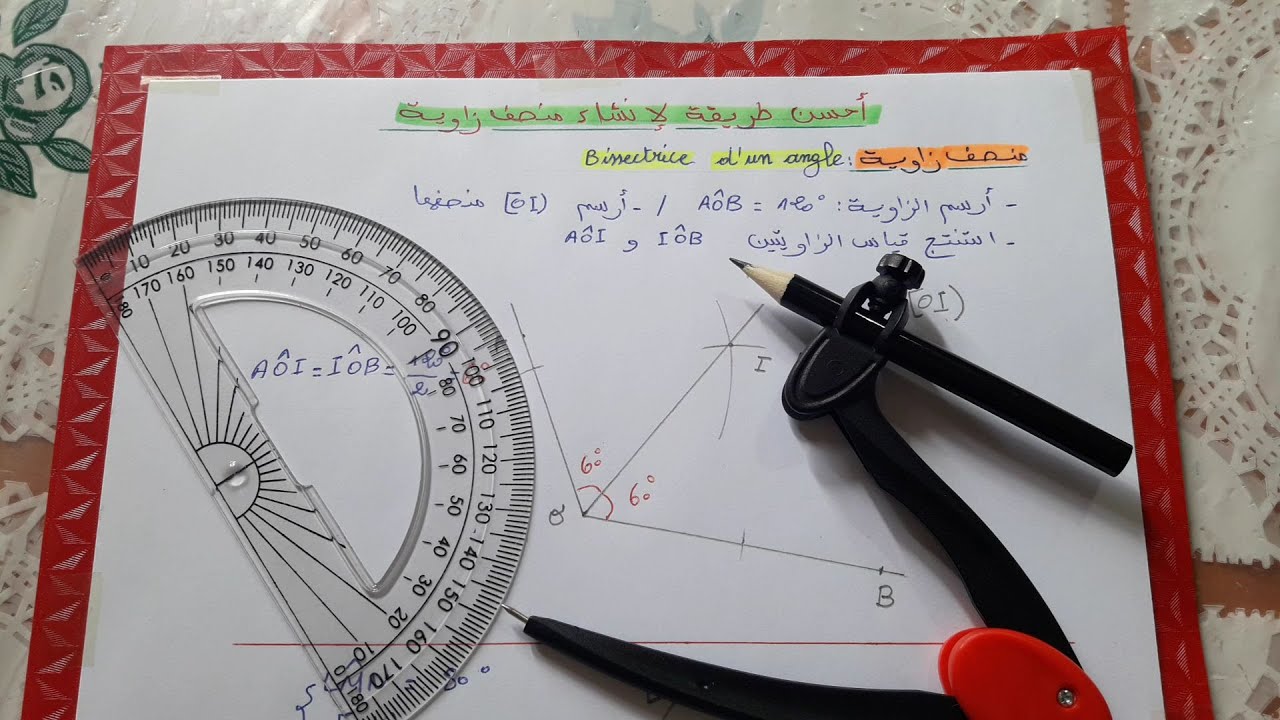 أحسن طريقة لإنشاء منصف زاوية
منصف زاوية: Bissectrice d'un angle
- أرسم الزاوية: AÔB = 120° / - أرسم [OI) منصفها
- استنتج قياس الزاويتين IÔB و AÔI
[OI)
AÔI = IÔB = 120°/2 = 60°
I
60°
60°
O
B
0 10 20 30 40 50 60 70 80 90 100 110 120 130 140 150 160 170 180
180 170 160 150 140 130 120 110 100 80 70 60 50 40 30 20 10 0